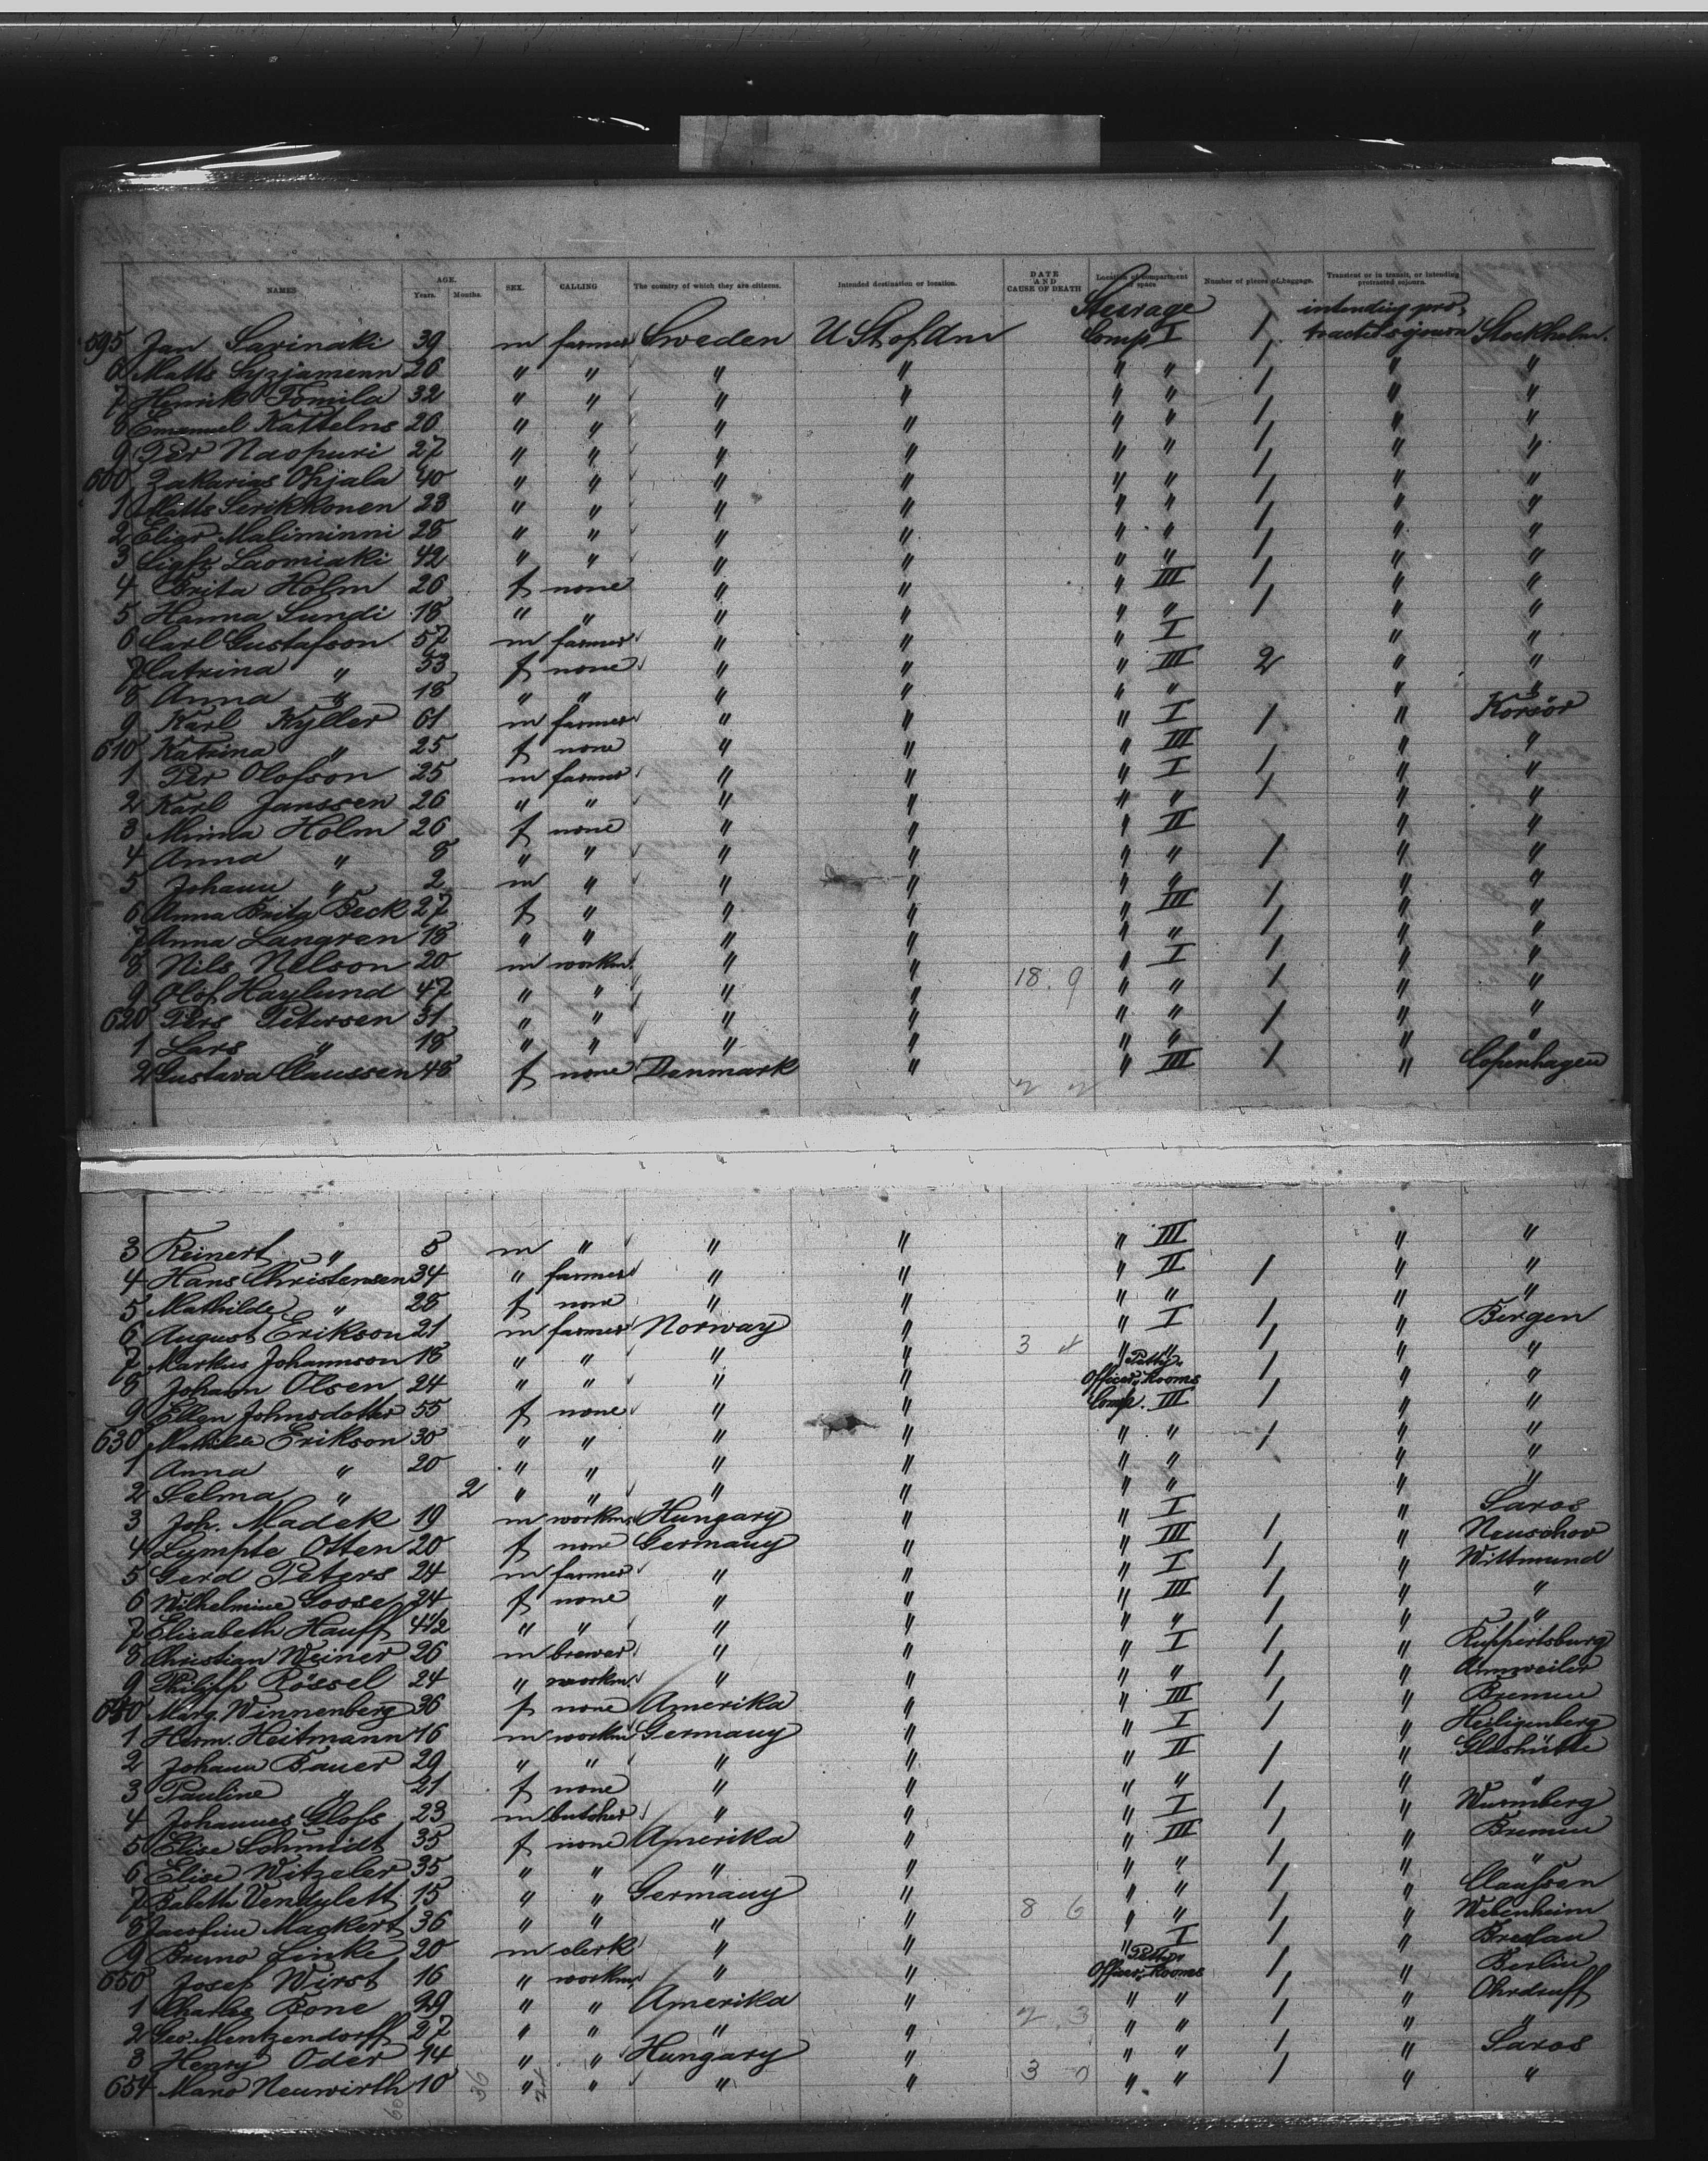 NAMES AGE. Years. Months. SEX. CALLING The country of which they are citizens. Intended destination or location. DATE AND CAUSE OF DEATH Location of compartment of space. Number of pieces of baggage. Transient or in transit, or intending protracted sojourn.
Steerage intending pro-
595 Jan Sarinaki 39 m farmer Sweden U St of Am Comp I 1 tracted sojourn Stockholm.
6 Matts 26 " " " " " " 1 " "
7 Henrik Tomila 32 " " " " " " 1 " "
8 Emanuel Kattelns 26 " " " " " " 1 " "
9 Per Naopuri 27 " " " " " " 1 " "
600 Zakarias Ohjala 40 " " " " " " 1 " "
1 Matts Serikkonen 23 " " " " " " 1 " "
2 Eligr Maliminni 28 " " " " " " 1 " "
3 Sigfr Laomiaki 42 " " " " " " 1 " "
4 Brita Holm 26 f none " " " III 1 " "
5 Hanna Sundi 18 " " " " " " 1 " "
6 Carl Gustafson 57 m farmer " " " I " "
7 Catrina " 53 f none " " " III 2 " "
8 Anna " 18 " " " " " " " "
9 Karl Kyller 61 m farmer " " " I 1 " Korsör
610 Katrina " 25 f none " " " III " "
1 Per Olofson 25 m farmer " " " I 1 " "
2 Karl Janssen 26 " " " " " " 1 " "
3 Minna Holm 26 f none " " " II " "
4 Anna " 8 " " " " " " 1 " "
5 Johann " 2 m " " " " " " "
6 Anna Brita Beck 27 f " " " " III 1 " "
7 Anna Langren 18 " " " " " " 1 " "
8 Nils Nelson 20 m workm. " " " I 1 " "
9 Olof Haylund 47 " " " " 18 9 " " 1 " "
620 Pers Petersen 31 " " " " " " 1 " "
1 Lars " 18 " " " " " " " "
2 Gustava Claussen 48 f none Denmark " " III 1 " Copenhagen
2 2
3 Reinert " 5 m " " " " III " "
4 Hans Christensen 34 " farmer " " " II 1 " "
5 Mathilde " 28 f none " " " " " "
6 August Erikson 21 m farmer Norway " " I 1 " Bergen
7 Markus Johannson 18 " " " " 3 4 " " 1 " "
8 Johann Olsen 24 " " " " Petty Officer Rooms 1 " "
9 Ellen Johnsdotter 55 f none " " Comp. III 1 " "
630 Mathilde Erikson 30 " " " " " " 1 " "
1 Anna " 20 " " " " " " " "
2 Selma " 2 " " " " " " " "
3 Joh. Madek 19 m workm. Hungary " " I " Saros
4 Lympte Otten 20 f none Germany " " III 1 " Neuschoo
5 Gerd Peters 24 m farmer " " " I 1 " Wittmund
6 Wilhelmine Goose 24 f none " " " III 1 " "
7 Elisabeth Hauff 4 1/2 " " " " " " 1 " "
8 Christian Weiner 26 m brewer " " " I 1 " Ruppertsburg
9 Philipp Rössel 24 " workm. " " " " 1 " Annweiler
640 Marg. Winnenberg 36 f none Amerika " " III 1 " Bremen
1 Herm. Heitmann 16 m workm Germany " " I 1 " Heiligenberg
2 Johann Bauer 29 " " " " " II 1 " Glashütte
3 Pauline " 21 f none " " " " " "
4 Johannes Gloss 23 m butcher " " " I 1 " Wurmberg
5 Elise Schmidt 35 f none Amerika " " III 1 " Bremen
6 Elise Witzeler 35 " " " " " " 1 " "
7 Babeth Vendylett 15 " " Germany " " " 1 " Claussen
8 Jacobine Mackert 36 " " " " 8 6 " " 1 " Webenheim
9 Bruno Linke 20 m clerk " " " I 1 " Breslau
650 Josef Wirst 16 " workm. " " Petty Officer Rooms 1 " Berlin
1 Charles Bone 29 " " Amerika " " " 1 " Ohrdruff
2 Geo. Mentzendorff 27 " " " " 2 3 " " 1 " "
3 Henry Oder 14 " " Hungary " " " 1 " Saros
654 Mano Neuwirth 10 " " " " 3 0 " " 1 " "
60 36 24